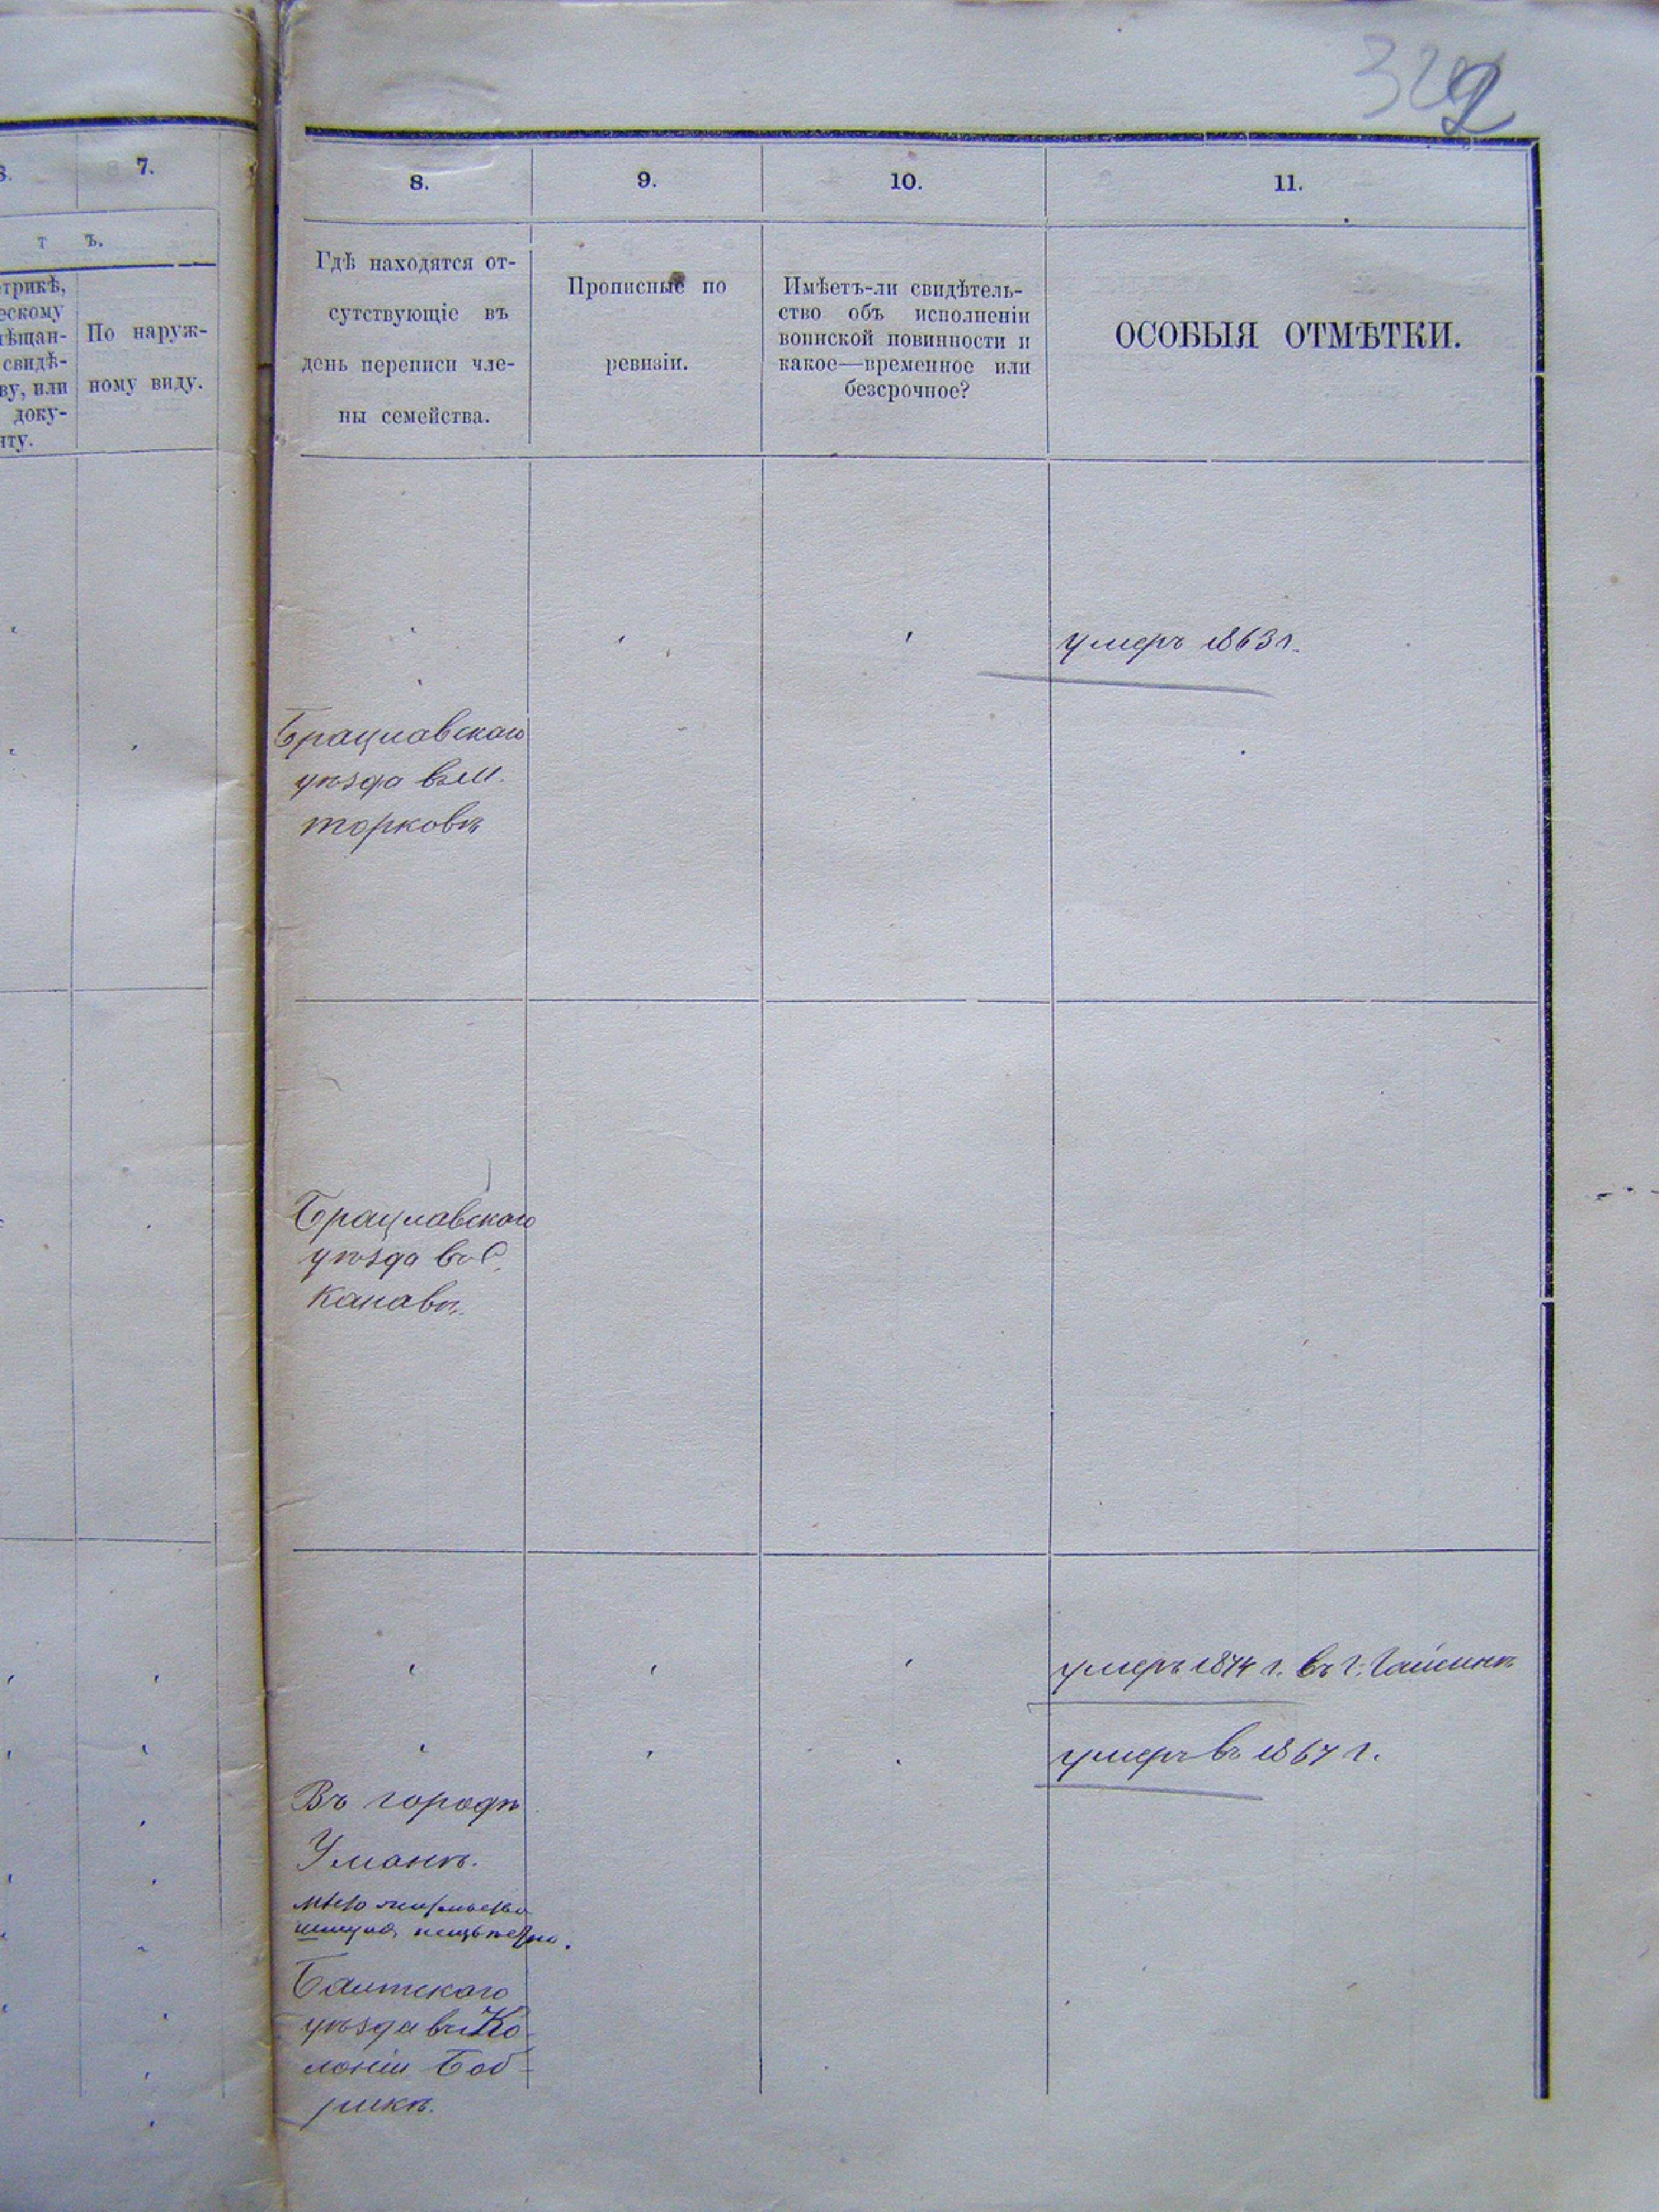 322
7.
т ъ.
трикѣ,
ескому
ѣщан-
свидѣ-
ву, или
доку-
нту.
По наруж-
ному виду.
8.
9.
10.
11.
Гдѣ находятся от-
сутствующіе въ
день переписи чле-
ны семейства.
Прописные по
ревизіи.
Имѣетъ-ли свидѣтель-
ство объ исполненіи
воинской повинности и
какое—временное или
безсрочное?
ОСОБЫЯ ОТМѢТКИ.
умеръ 1863 г.
Брацлавскаго
уѣзда въ м.
торковѣ
Брацлавскаго
уѣзда въ с.
Канавѣ.
умеръ 1874 г. въ г. Гайсинѣ
умеръ въ 1867 г.
Въ городѣ
Уманѣ.
Балтскаго
уѣзда въ Ко-
лоніи Боб-
рикѣ.